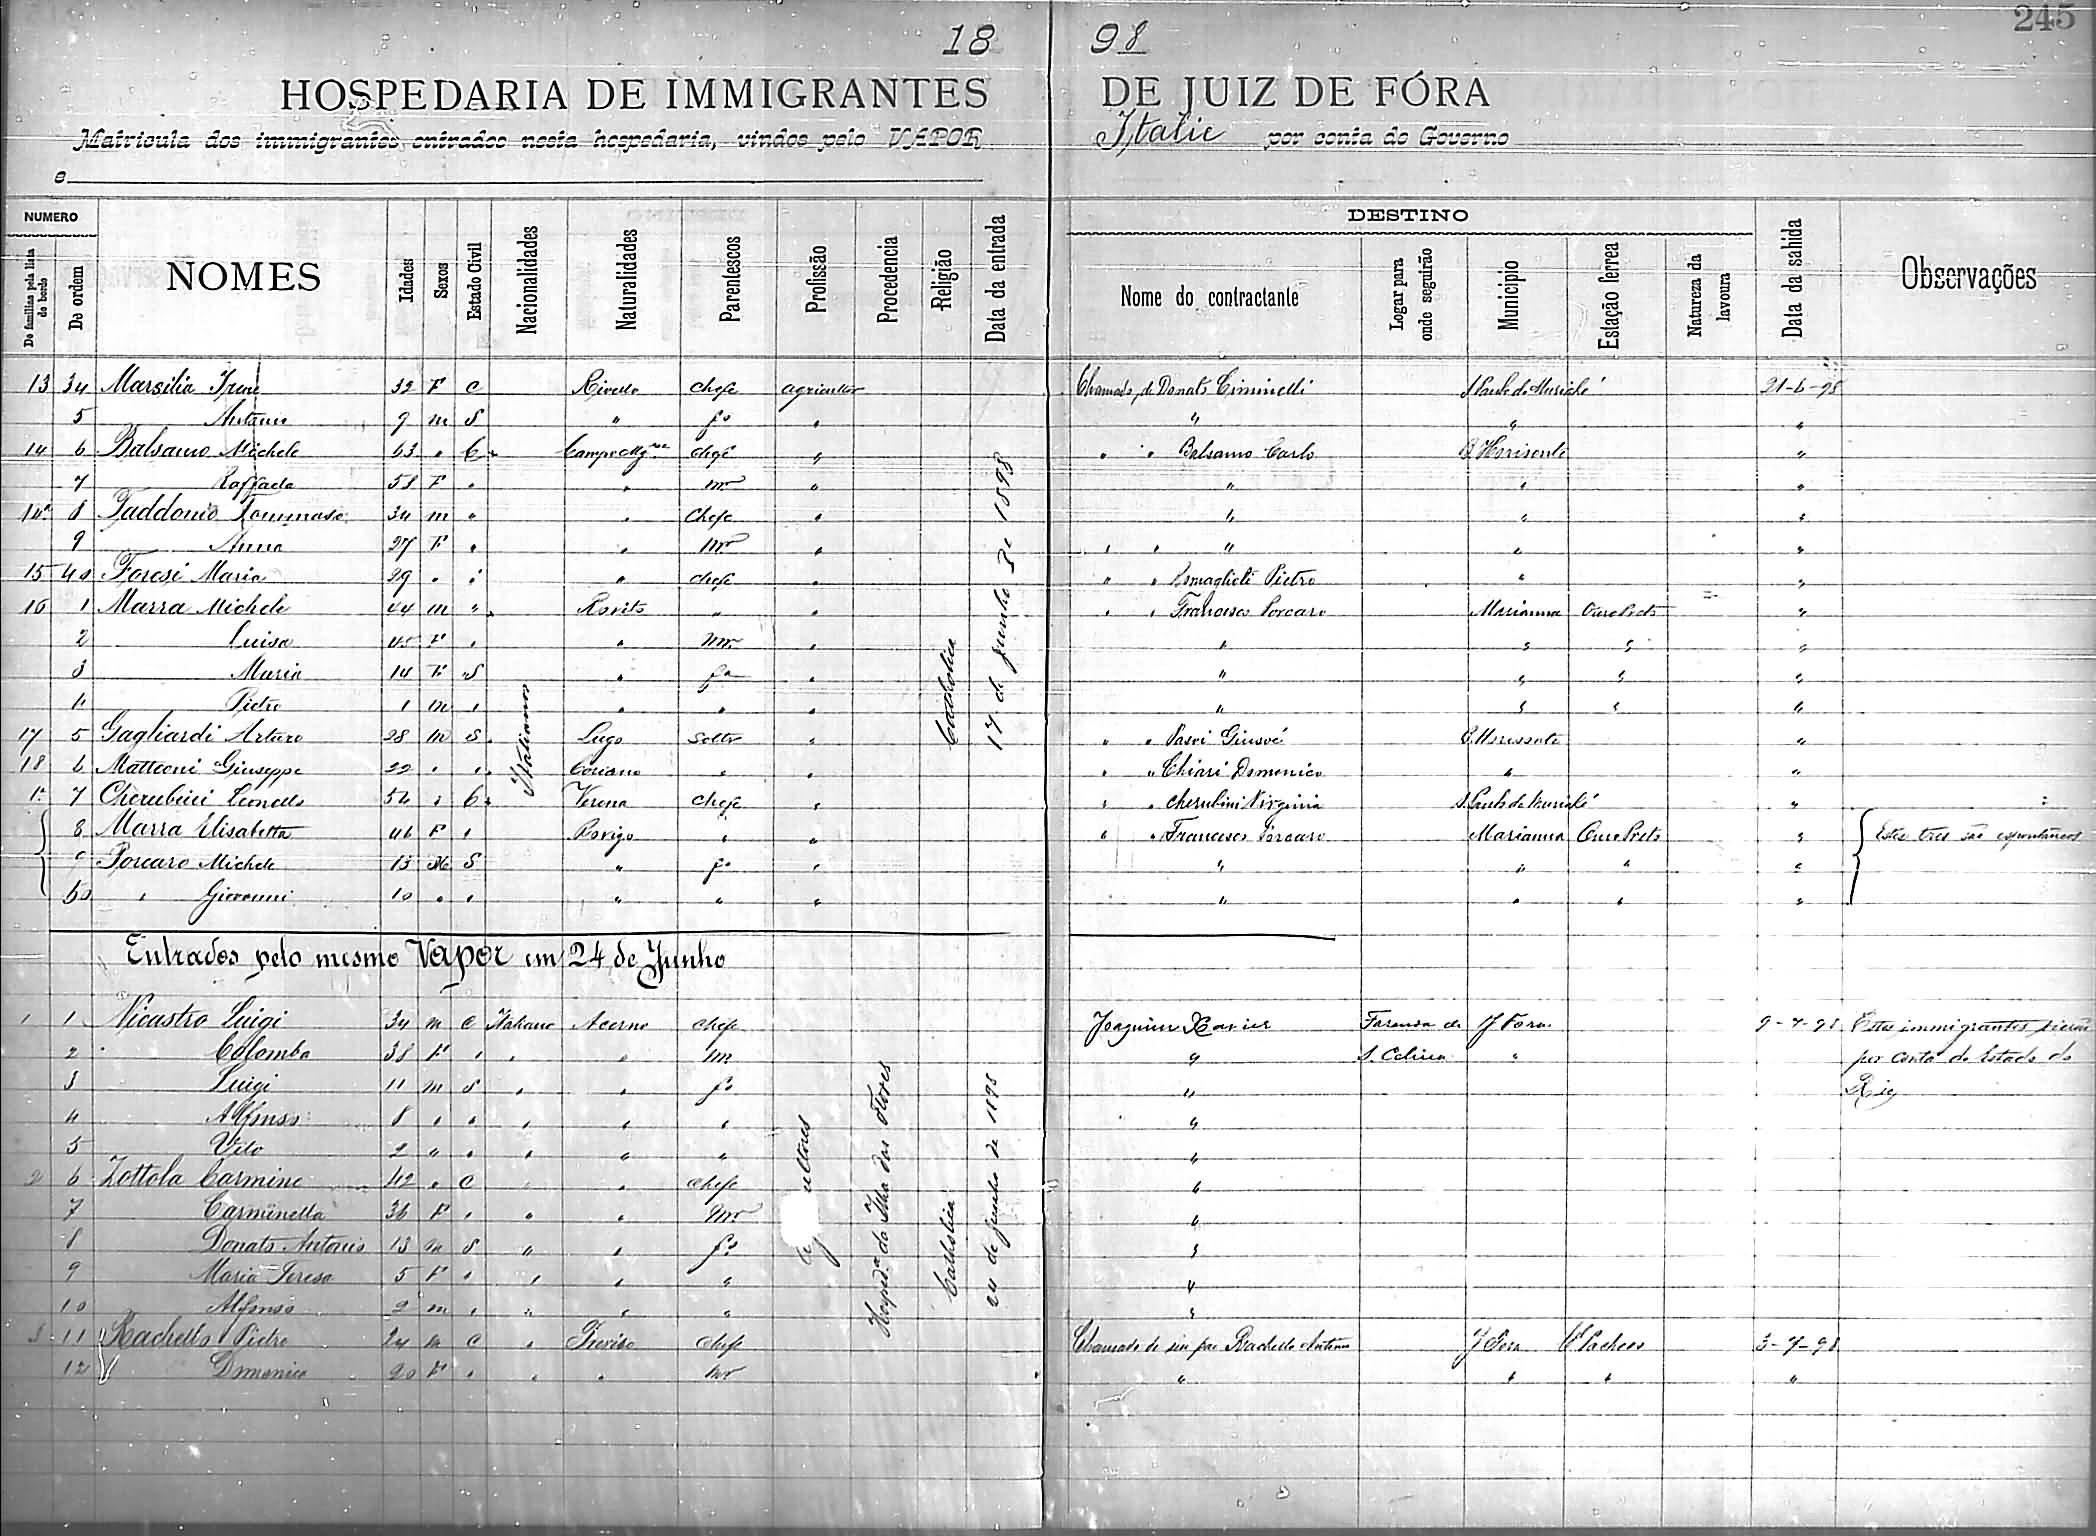 245
18 98
HOSPEDARIA DE IMMIGRANTES DE JUIZ DE FÓRA
Matricula dos immigrantes entrados nesta hospedaria, vindos pelo VAPOR Italie por conta do Governo
e
NUMERO
De familias pela lista de bordo
De ordem
NOMES
Idades
Sexos
Estado Civil
Nacionalidades
Naturalidades
Parentescos
Profissão
Procedencia
Religião
Data da entrada
DESTINO
Nome do contractante
Logar para onde seguirão
Municipio
Estação ferrea
Natureza da lavoura
Data da sahida
Observações
13 34 Marsilia Irene 32 F C Rivello Chefe agricultor Chamado, de Donato Ciminelli S. Paulo do Muriahé 21-6-98
5 Antonio 9 m S " fo " " " "
14 6 Balsamo Michele 63 " C Campo Chefe " " " Balsamo Carlo B. Horisonte "
7 Raffaela 58 F " " mer " " " "
14a 8 Taddonio Tommaso 34 m " " Chefe " " " "
9 Anna 27 F " " Mer " " " " " "
15 40 Foresi Maria 29 " " " chefe " " " Pietro " "
16 1 Marra Michele 44 m " Rovito " " " " Francesco Porcaro Marianna Ouro Preto "
2 Luisa 45 F " " Mer " " " " "
3 Maria 14 F S " fa " " " " "
4 Pietro 1 m " " " " " " "
17 5 Gagliardi Arturo 28 m S. Lugo Soltro " " " B. Horisonte "
18 6 Matteoni Giuseppe 22 " " Coriano " " " " Chiari Domenico " "
1a 7 Cherubini Leonello 54 " C Verona Chefe " " " Cherubini Virginia S. Paulo do Muriahé "
8 Marra Elisabetta 46 F " Rovigo " " " " Francesco Porcaro Marianna Ouro Preto " Este tres são espontaneos
9 Porcaro Michele 13 M S " fo " " " " "
50 " Giovanni 10 " " " " " " " " "
Italianos
Catholica
17 de Junho de 1898
Entrados pelo mesmo Vapor em 24 de Junho
1 1 Nicastro Luigi 34 m C Italiano Acerno Chefe Joaquim Xavier Fazenda de J Fora 9-7-98 Estes immigrantes vierão
2 Colomba 38 F " " " m " S. Celina " por conta do Estado do
3 Luigi 11 m S " " fo " Rio
4 Alfonso 8 " " " " " "
5 Vito 2 " " " " " "
2 6 Zottola Carmine 42 " C " Chefe "
7 Carminella 36 F " " " Mer "
8 Donato Antonio 13 m S " " fo "
9 Maria Teresa 5 F " " " " "
10 Alfonso 2 m " " " " "
3 11 Rachello Pietro 24 m C " Treviso Chefe Chamado de seu pae Rachello Antonio J Fora Cl Pacheco 3-7-98
12 Domenica 20 F " " " mr " " " "
ultores
Hosped.a da Ilha das Flores
Catholica
24 de Junho de 1898